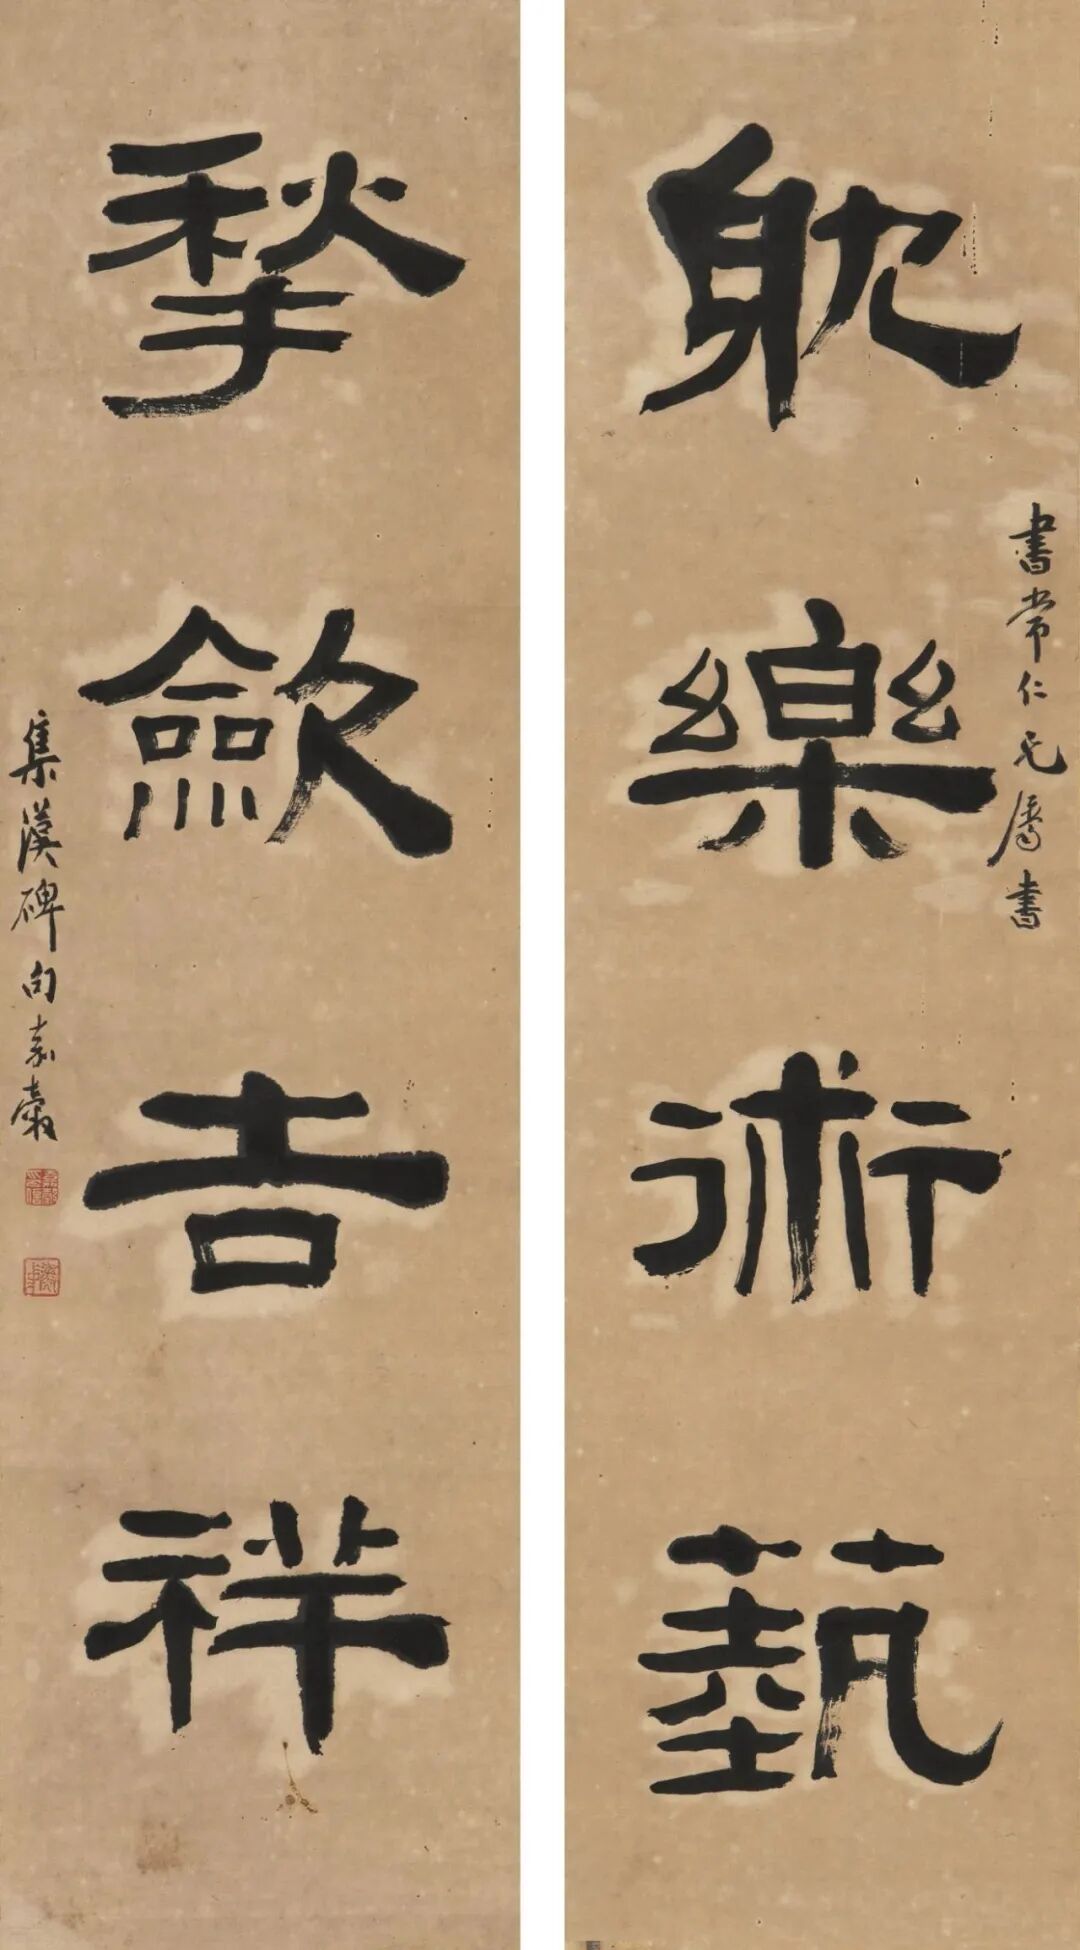 躭樂術藝
書常仁兄屬書
揫歛吉祥
集漢碑句嘉穀